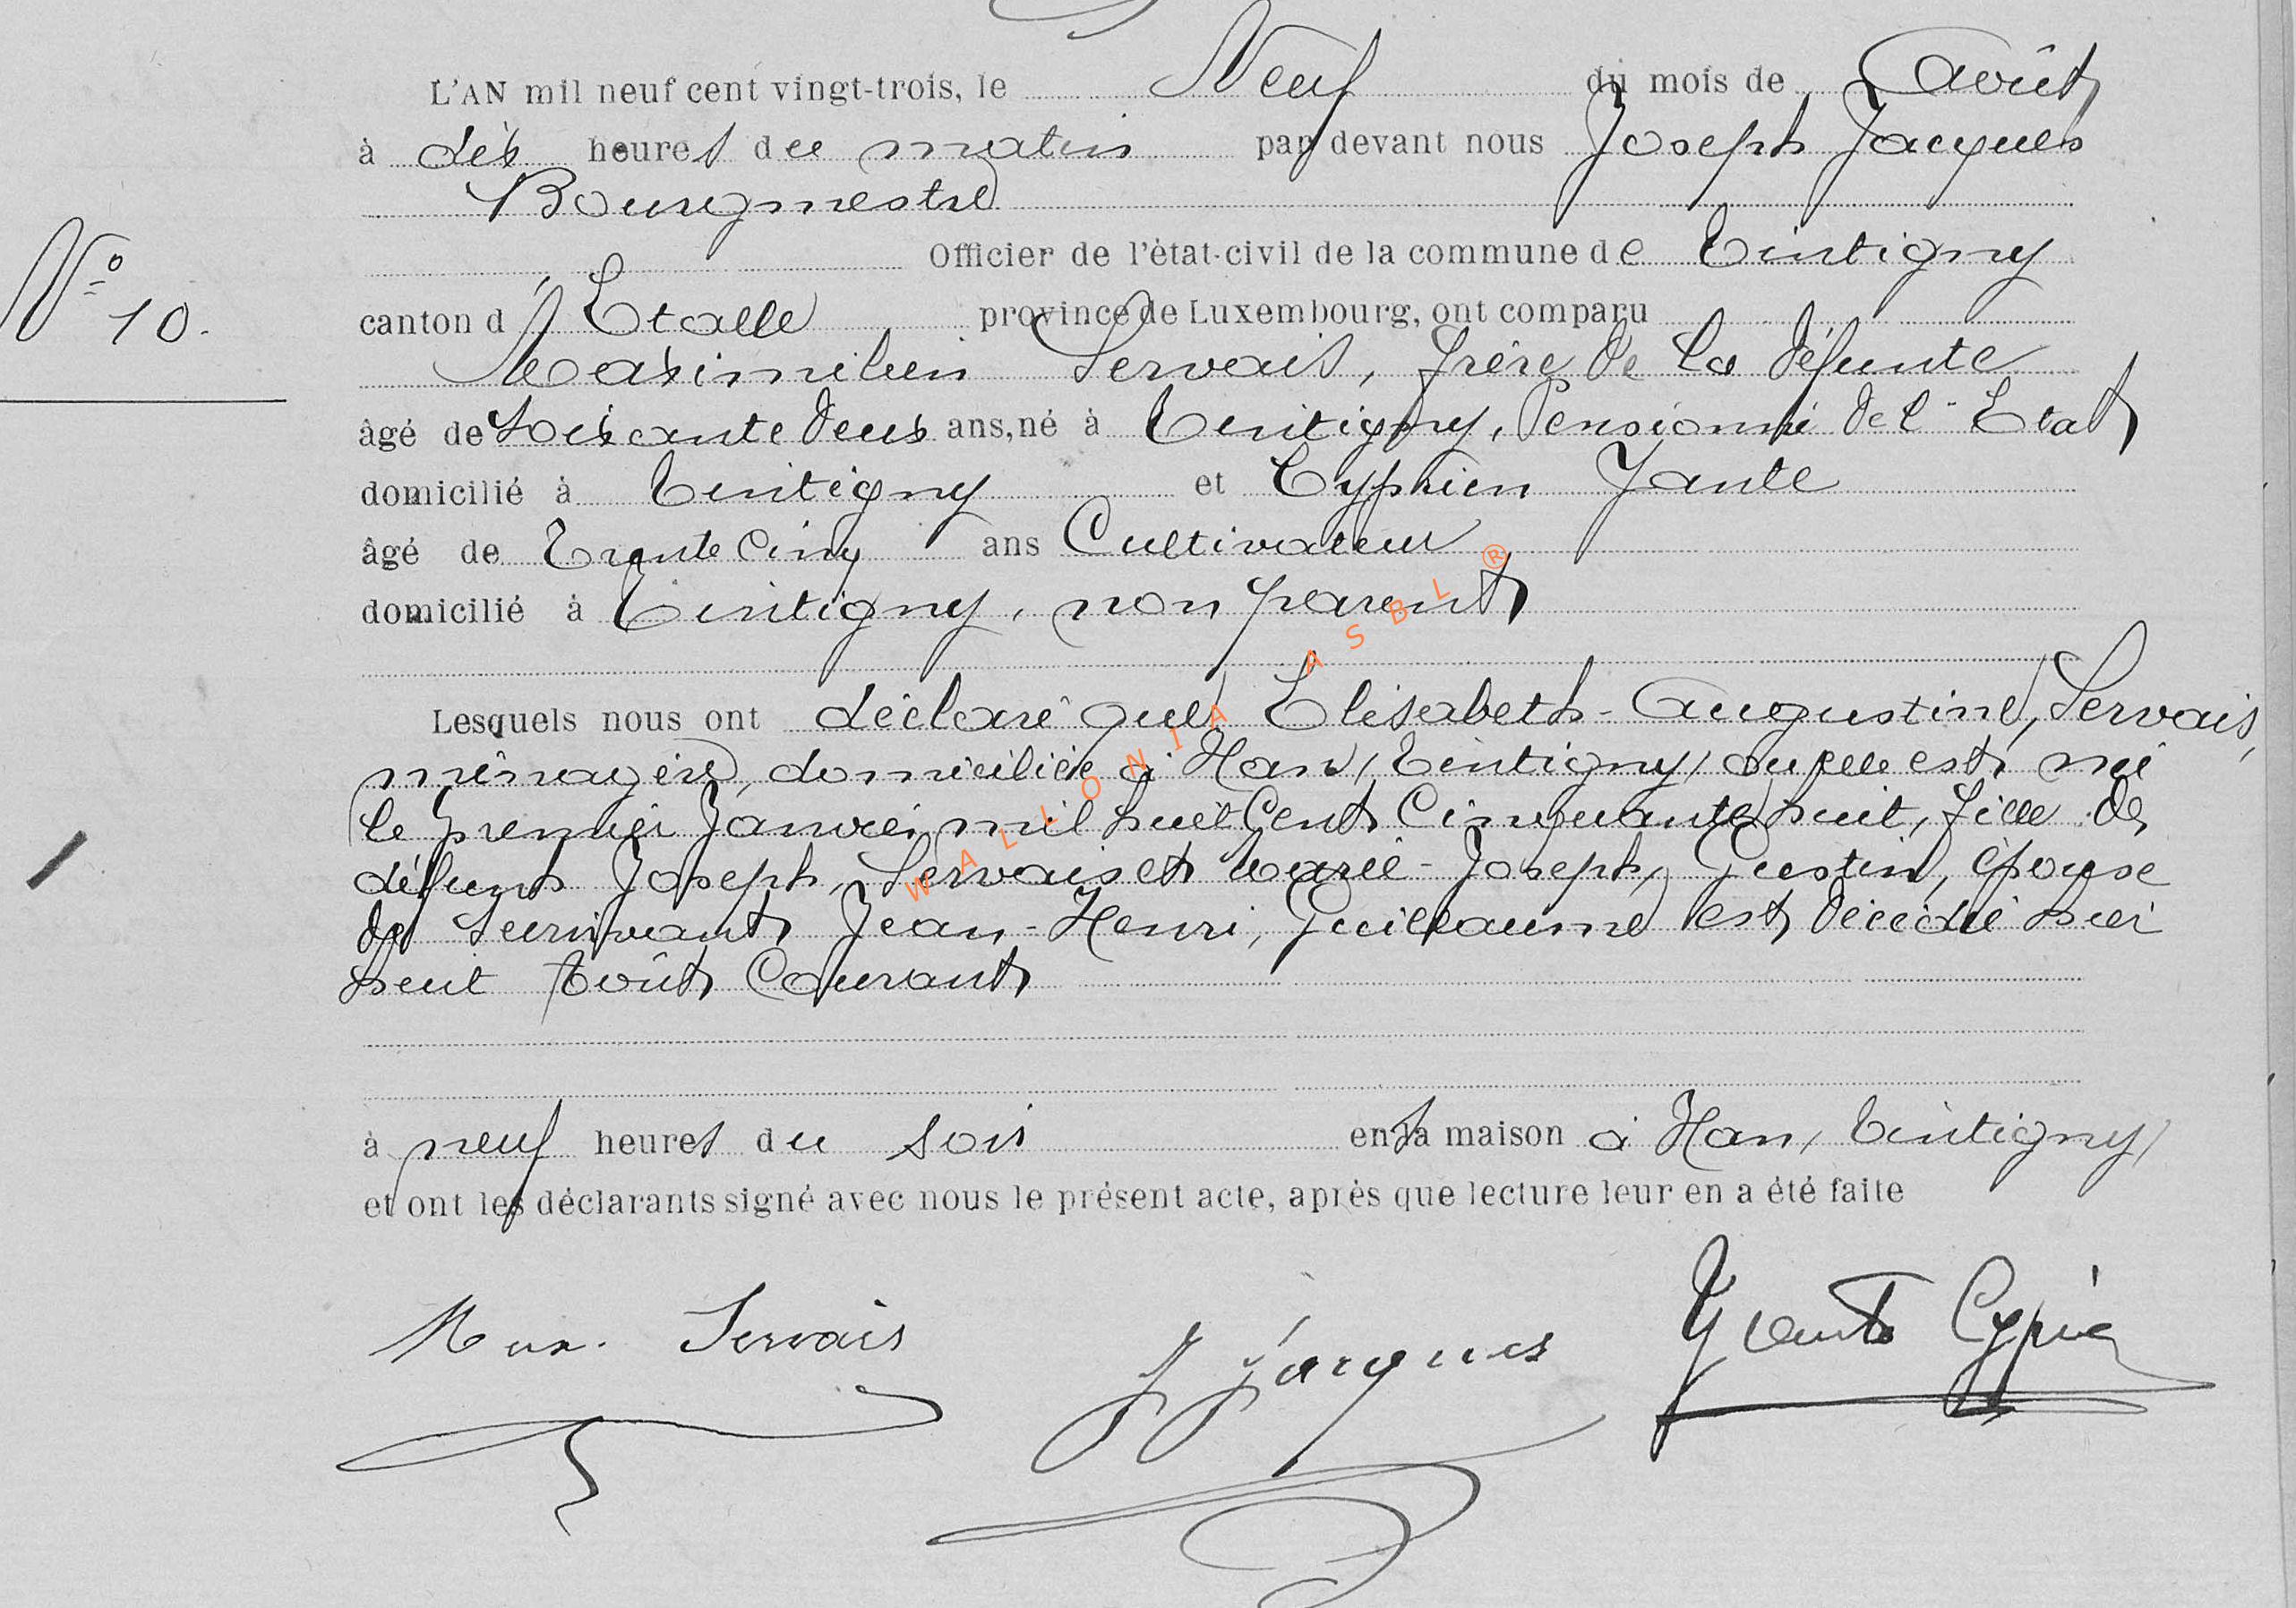 L'AN mil neuf cent vingt-trois, le Neuf du mois de Août
à dix heures du matin par devant nous Joseph Jacques
Bourgmestre
Officier de l'état-civil de la commune de Tintigny
N° 10.
canton d'Etalle province de Luxembourg, ont comparu
Maximilien Servais, frère de la défunte
âgé de Soixante deux ans, né à Tintigny, Pensionné de l'Etat
domicilié à Tintigny et Cyprien Yante
âgé de Trente Cinq ans Cultivateur
domicilié à Tintigny, non parent
Lesquels nous ont déclaré que Elisabeth-Augustine, Servais,
ménagère, domiciliée à Han, Tintigny, ou elle est né
le premier Janvier mil huit Cent Cinquante huit, fille de
défunts Joseph, Servais et Marie-Joseph, Gustin, épouse
de Survivant Jean-Henri, Guillaume est décédé hier
huit Août Courant
à neuf heures du soir en sa maison à Han, Tintigny,
et ont les déclarants signé avec nous le présent acte, après que lecture leur en a été faite
Max. Servais J Jacques Yante Cyprien
WALLONIA ASBL ®